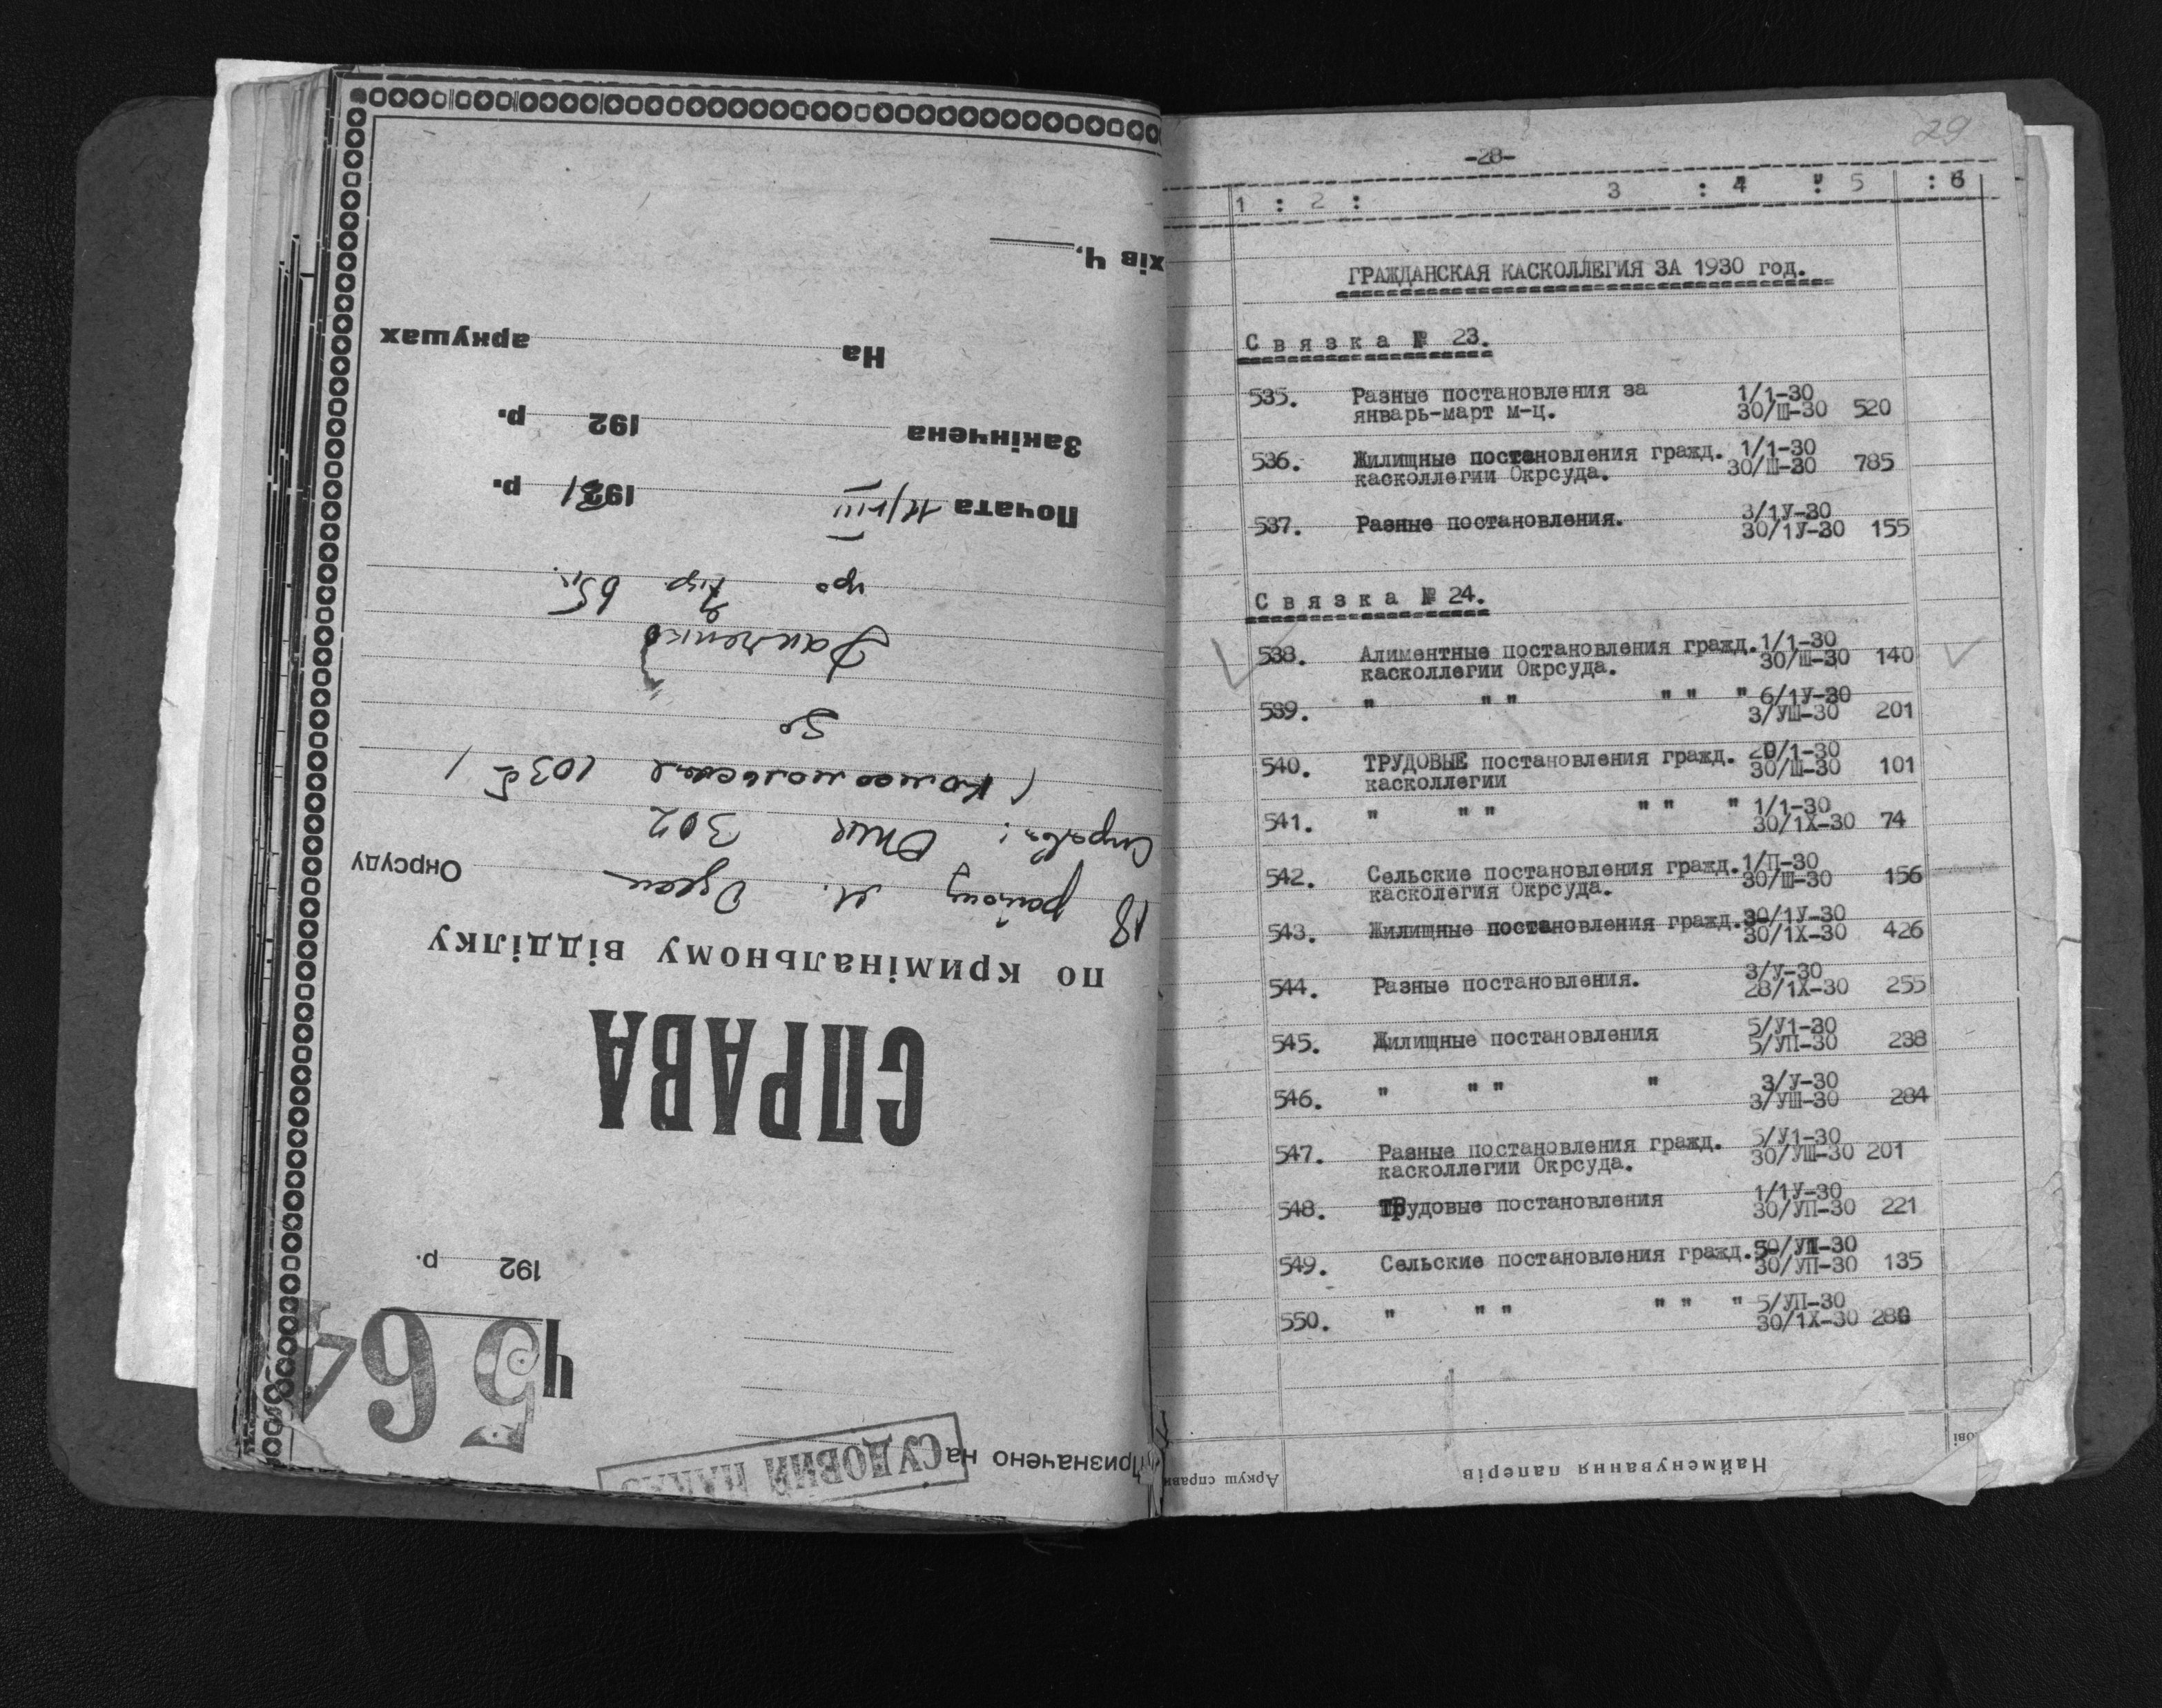 СУДОВИЙ
Призначено на
Ч 564
192 р.
СПРАВА
по кримінальному відділку
Окрсуду
18 району м. Одеси
Справа: Опис 302
(Комсомольская 103
до
192 р.
Почата 11/VIII 1931 р.
Закінчена 192 р.
На аркушах
хів Ч.
29
-28-
1 : 2 : 3 : 4 : 5 : 6
ГРАЖДАНСКАЯ КАСКОЛЛЕГИЯ ЗА 1930 год.
С в я з к а № 23.
535. Разные постановления за 1/1-30
январь-март м-ц. 30/Ш-30 520
536. Жилищные постановления гражд. 1/1-30
касколлегии Окрсуда. 30/Ш-30 785
537. Разные постановления. 3/1У-30
30/1У-30 155
С в я з к а № 24.
538. Алиментные постановления гражд. 1/1-30
касколлегии Окрсуда. 30/Ш-30 140
539. " " " " " " 6/1У-30
3/УШ-30 201
540. ТРУДОВЫЕ постановления гражд. 20/1-30
касколлегии 30/Ш-30 101
541. " " " " " " 1/1-30
30/1Х-30 74
542. Сельские постановления гражд. 1/П-30
касколегия Окрсуда. 30/Ш-30 156
543. Жилищные постановления гражд. 30/1У-30
30/1Х-30 426
544. Разные постановления. 3/У-30
28/1Х-30 255
545. Жилищные постановления 5/У1-30
5/УП-30 238
546. " " " " 3/У-30
3/УШ-30 284
547. Разные постановления гражд. 5/У1-30
касколлегии Окрсуда. 30/УШ-30 201
548. Трудовые постановления 1/1У-30
30/УП-30 221
549. Сельские постановления гражд. 50/УП-30
30/УП-30 135
550. " " " " " " 5/УП-30
30/1Х-30 280
Аркуш справи
Найменування паперів